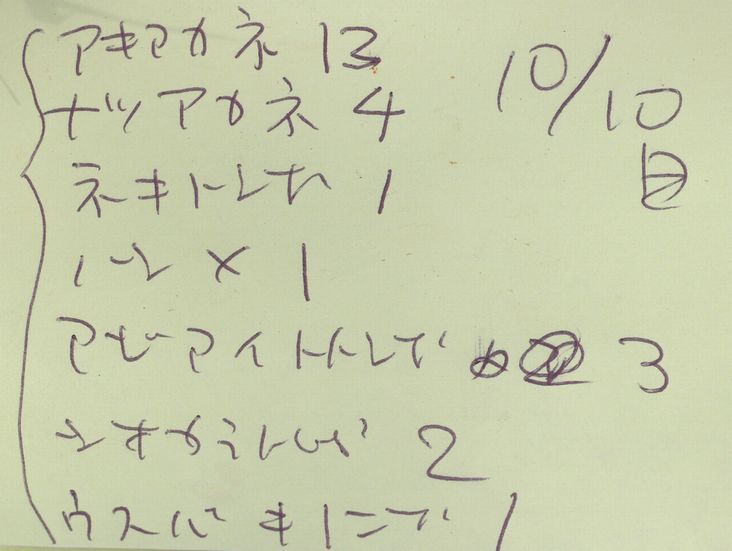 アキアカネ 13
10/10
日
ナツアカネ 4
ネキトンボ 1
ハンメ 1
アジアイトトンボ 3
シオカラトンボ 2
ウスバキトンボ 1